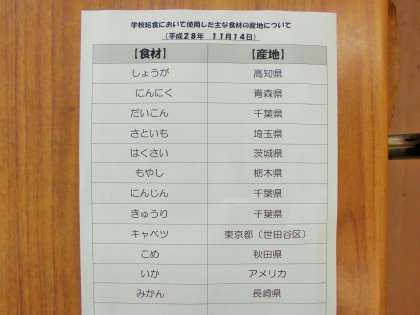 学校給食において使用した主な食材の産地について
（平成２８年　１１月１４日）
【食材】　【産地】
しょうが　高知県
にんにく　青森県
だいこん　千葉県
さといも　埼玉県
はくさい　茨城県
もやし　栃木県
にんじん　千葉県
きゅうり　千葉県
キャベツ　東京都（世田谷区）
こめ　秋田県
いか　アメリカ
みかん　長崎県